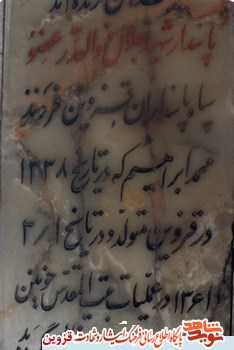 پاسدار شهید جلال والقدر عضو
سپاه پاسداران قزوین فرزند
محمد ابراهیم که در تاریخ ۱۳۳۸
در قزوین متولد و در تاریخ ۴/۱
۱۳۶۱ در عملیات بیت المقدس خونین
نوید شاهد
پایگاه اطلاع رسانی فرهنگ ایثار و شهادت قزوین